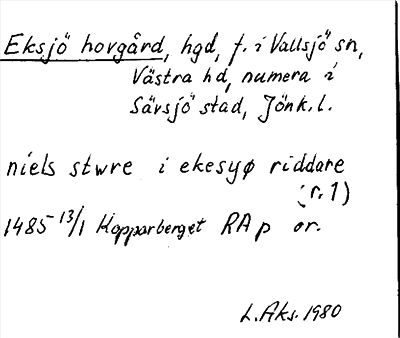 Eksjö hovgård, hgd, f. i Vallsjö sn,
Västra hd, numera i
Sävsjö stad, Jönk. l.
niels stwre i ekesyø riddare
(r. 1)
1485 13/1 Kopparberget RA p or.
L. Aks. 1980